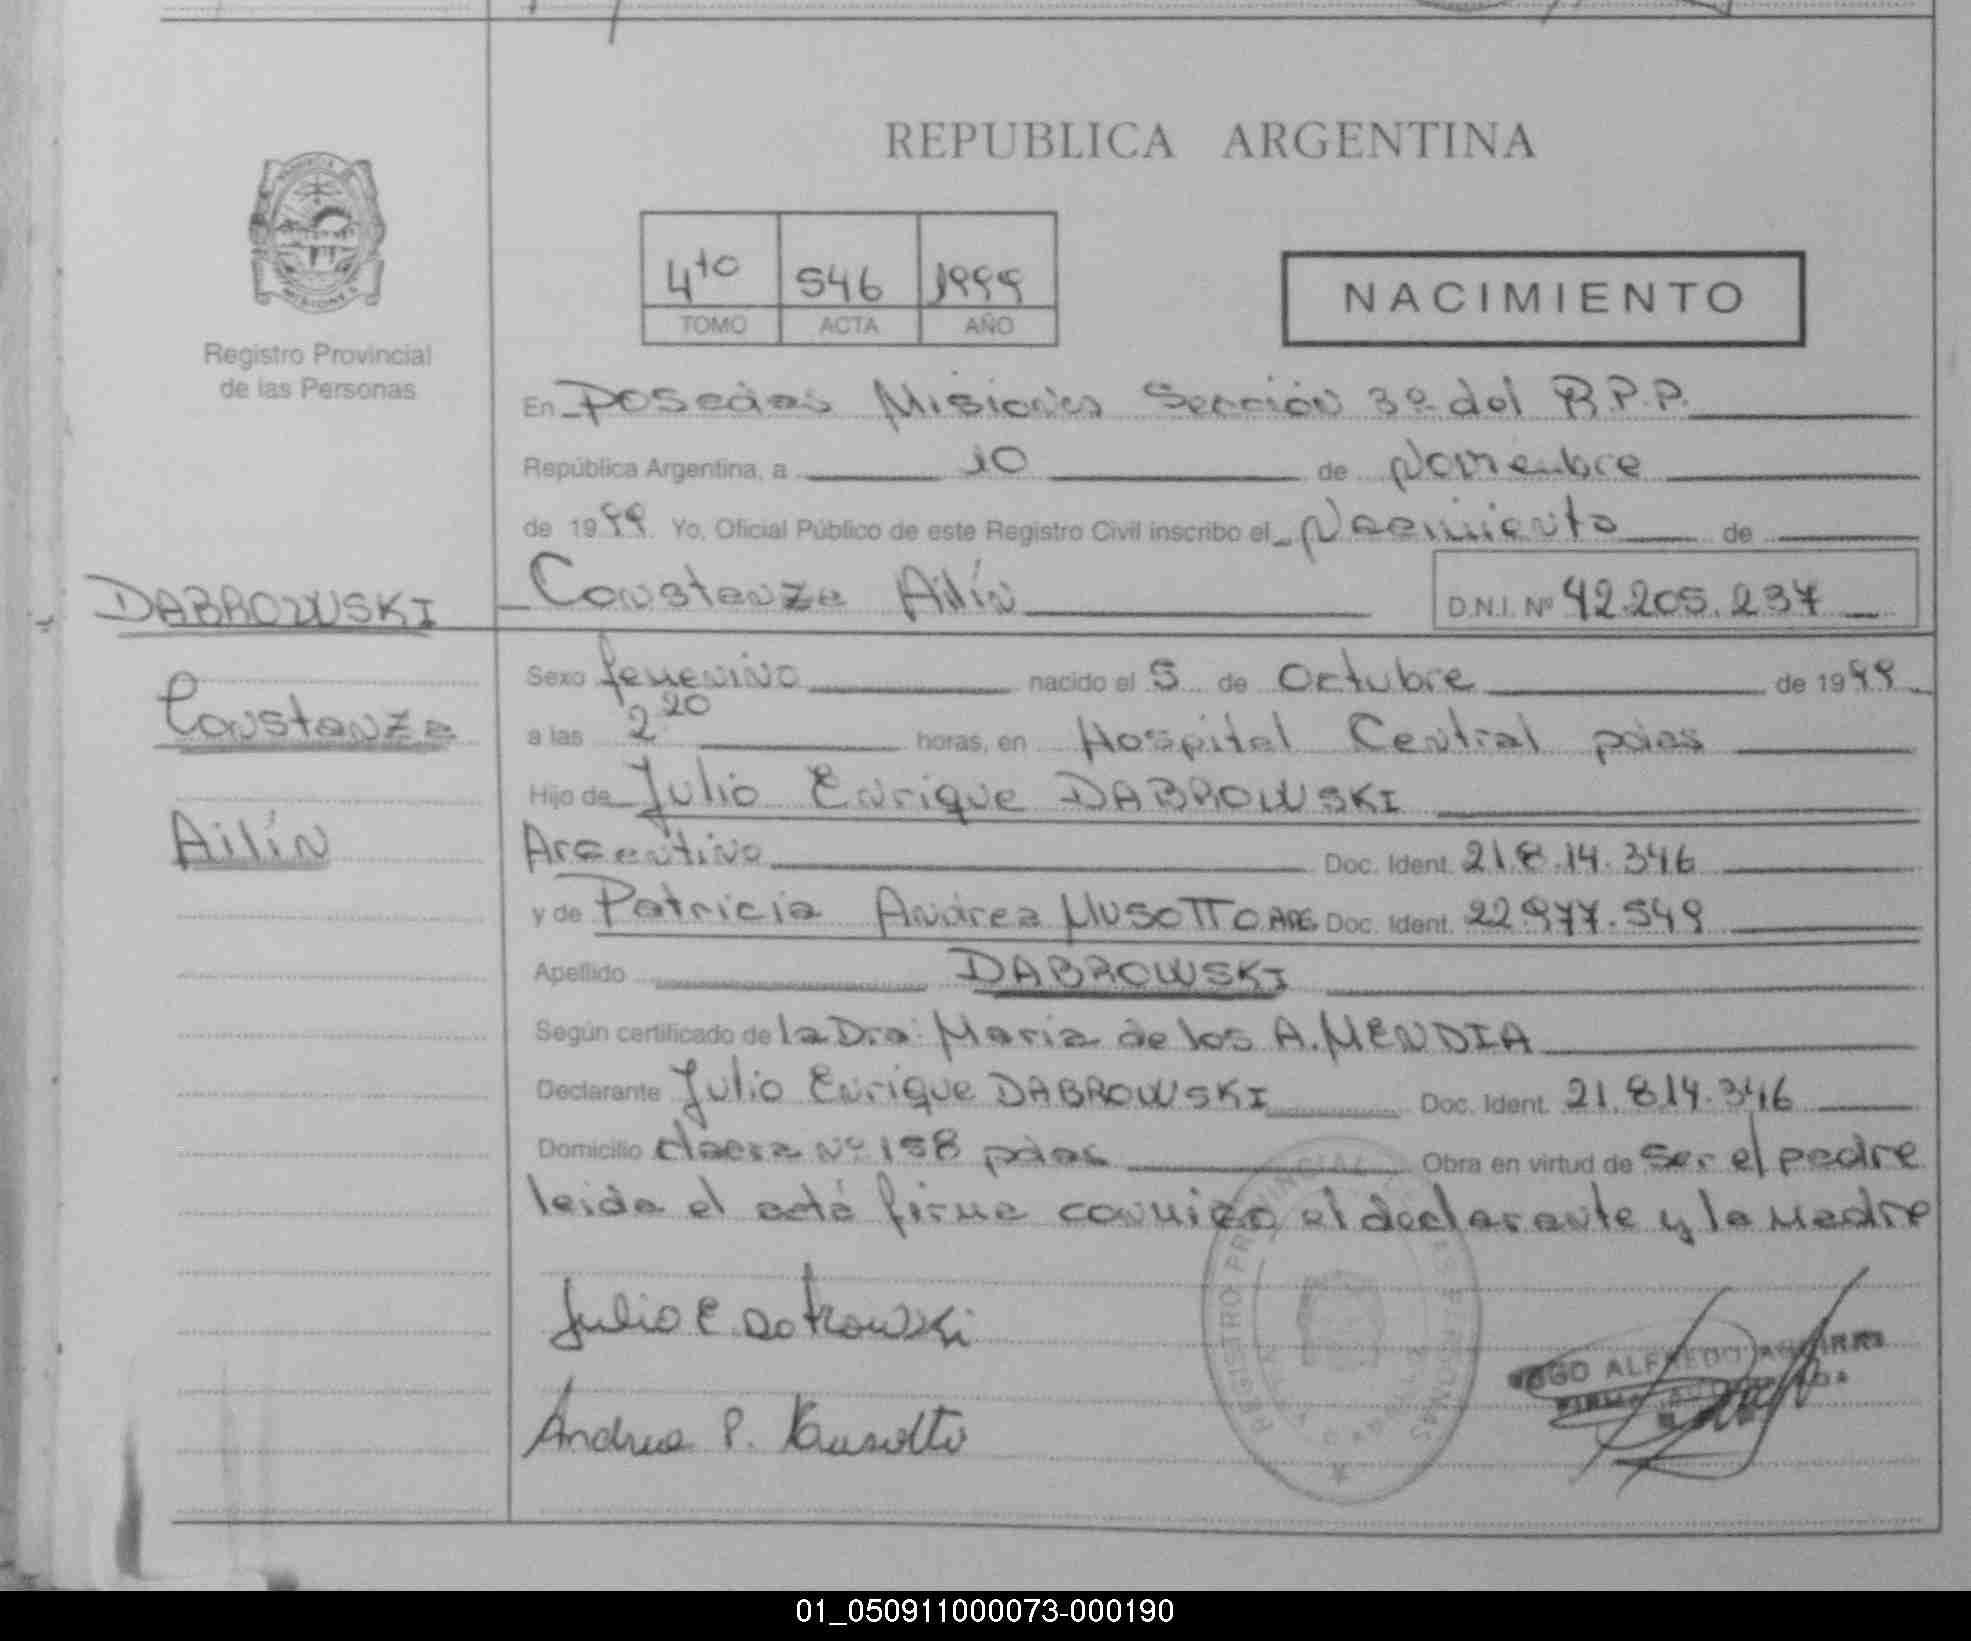 REPUBLICA ARGENTINA
MISIONES
Registro Provincial
de las Personas
4to 546 1999
TOMO ACTA AÑO
NACIMIENTO
En Posadas Misiones Sección 3º del R.P.P.
República Argentina, a 10 de Noviembre
de 1999 Yo, Oficial Público de este Registro Civil inscribo el Nacimiento de
DABROWSKI
Constanza Ailín
D.N.I. Nº 42.205.237
Constanza
Ailín
Sexo femenino nacido el 5 de Octubre de 1999
a las 2 20 horas, en Hospital Central pdas
Hijo de Julio Enrique DABROWSKI
Argentino Doc. Ident. 21.814.346
y de Patricia Andrea MUSOTTO ARG. Doc. Ident. 22.977.549
Apellido DABROWSKI
Según certificado de la Dra: Maria de los A. MENDIA
Declarante Julio Enrique DABROWSKI Doc. Ident. 21.814.346
Domicilio Nº 158 pdas Obra en virtud de ser el padre
leida el acta firma conmigo el declarante y la madre
REGISTRO PROVINCIAL DE LAS PERSONAS
Julio E. Dabrowski
Andrea P. Musotto
ALFREDO
01_050911000073-000190